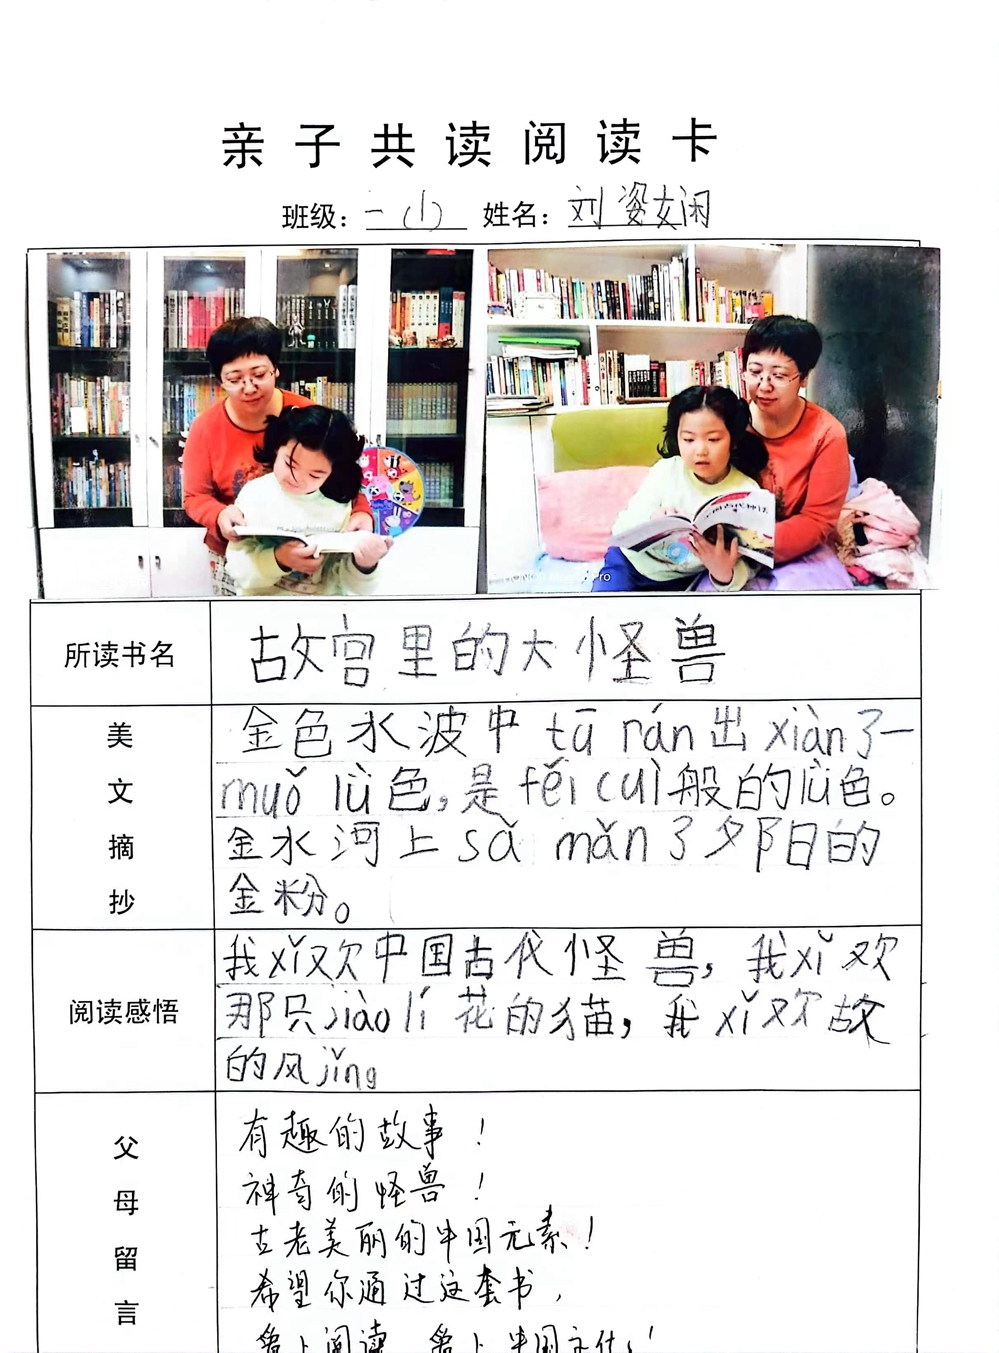 亲子共读阅读卡
班级：一（1） 姓名：刘姿妏闲
中国古代神话
所读书名
故宫里的大怪兽
美文摘抄
金色水波中tū rán出xiàn了一
muǒ lǜ色，是fěi cuì般的lǜ色。
金水河上sǎ mǎn了夕阳的
金粉。
阅读感悟
我xǐ欢中国古代怪兽，我xǐ欢
那只jiào lí花的猫，我xǐ欢故
的风jǐng
父母留言
有趣的故事！
神奇的怪兽！
古老美丽的中国元素！
希望你通过这套书，
爱上阅读，爱上中国文化！